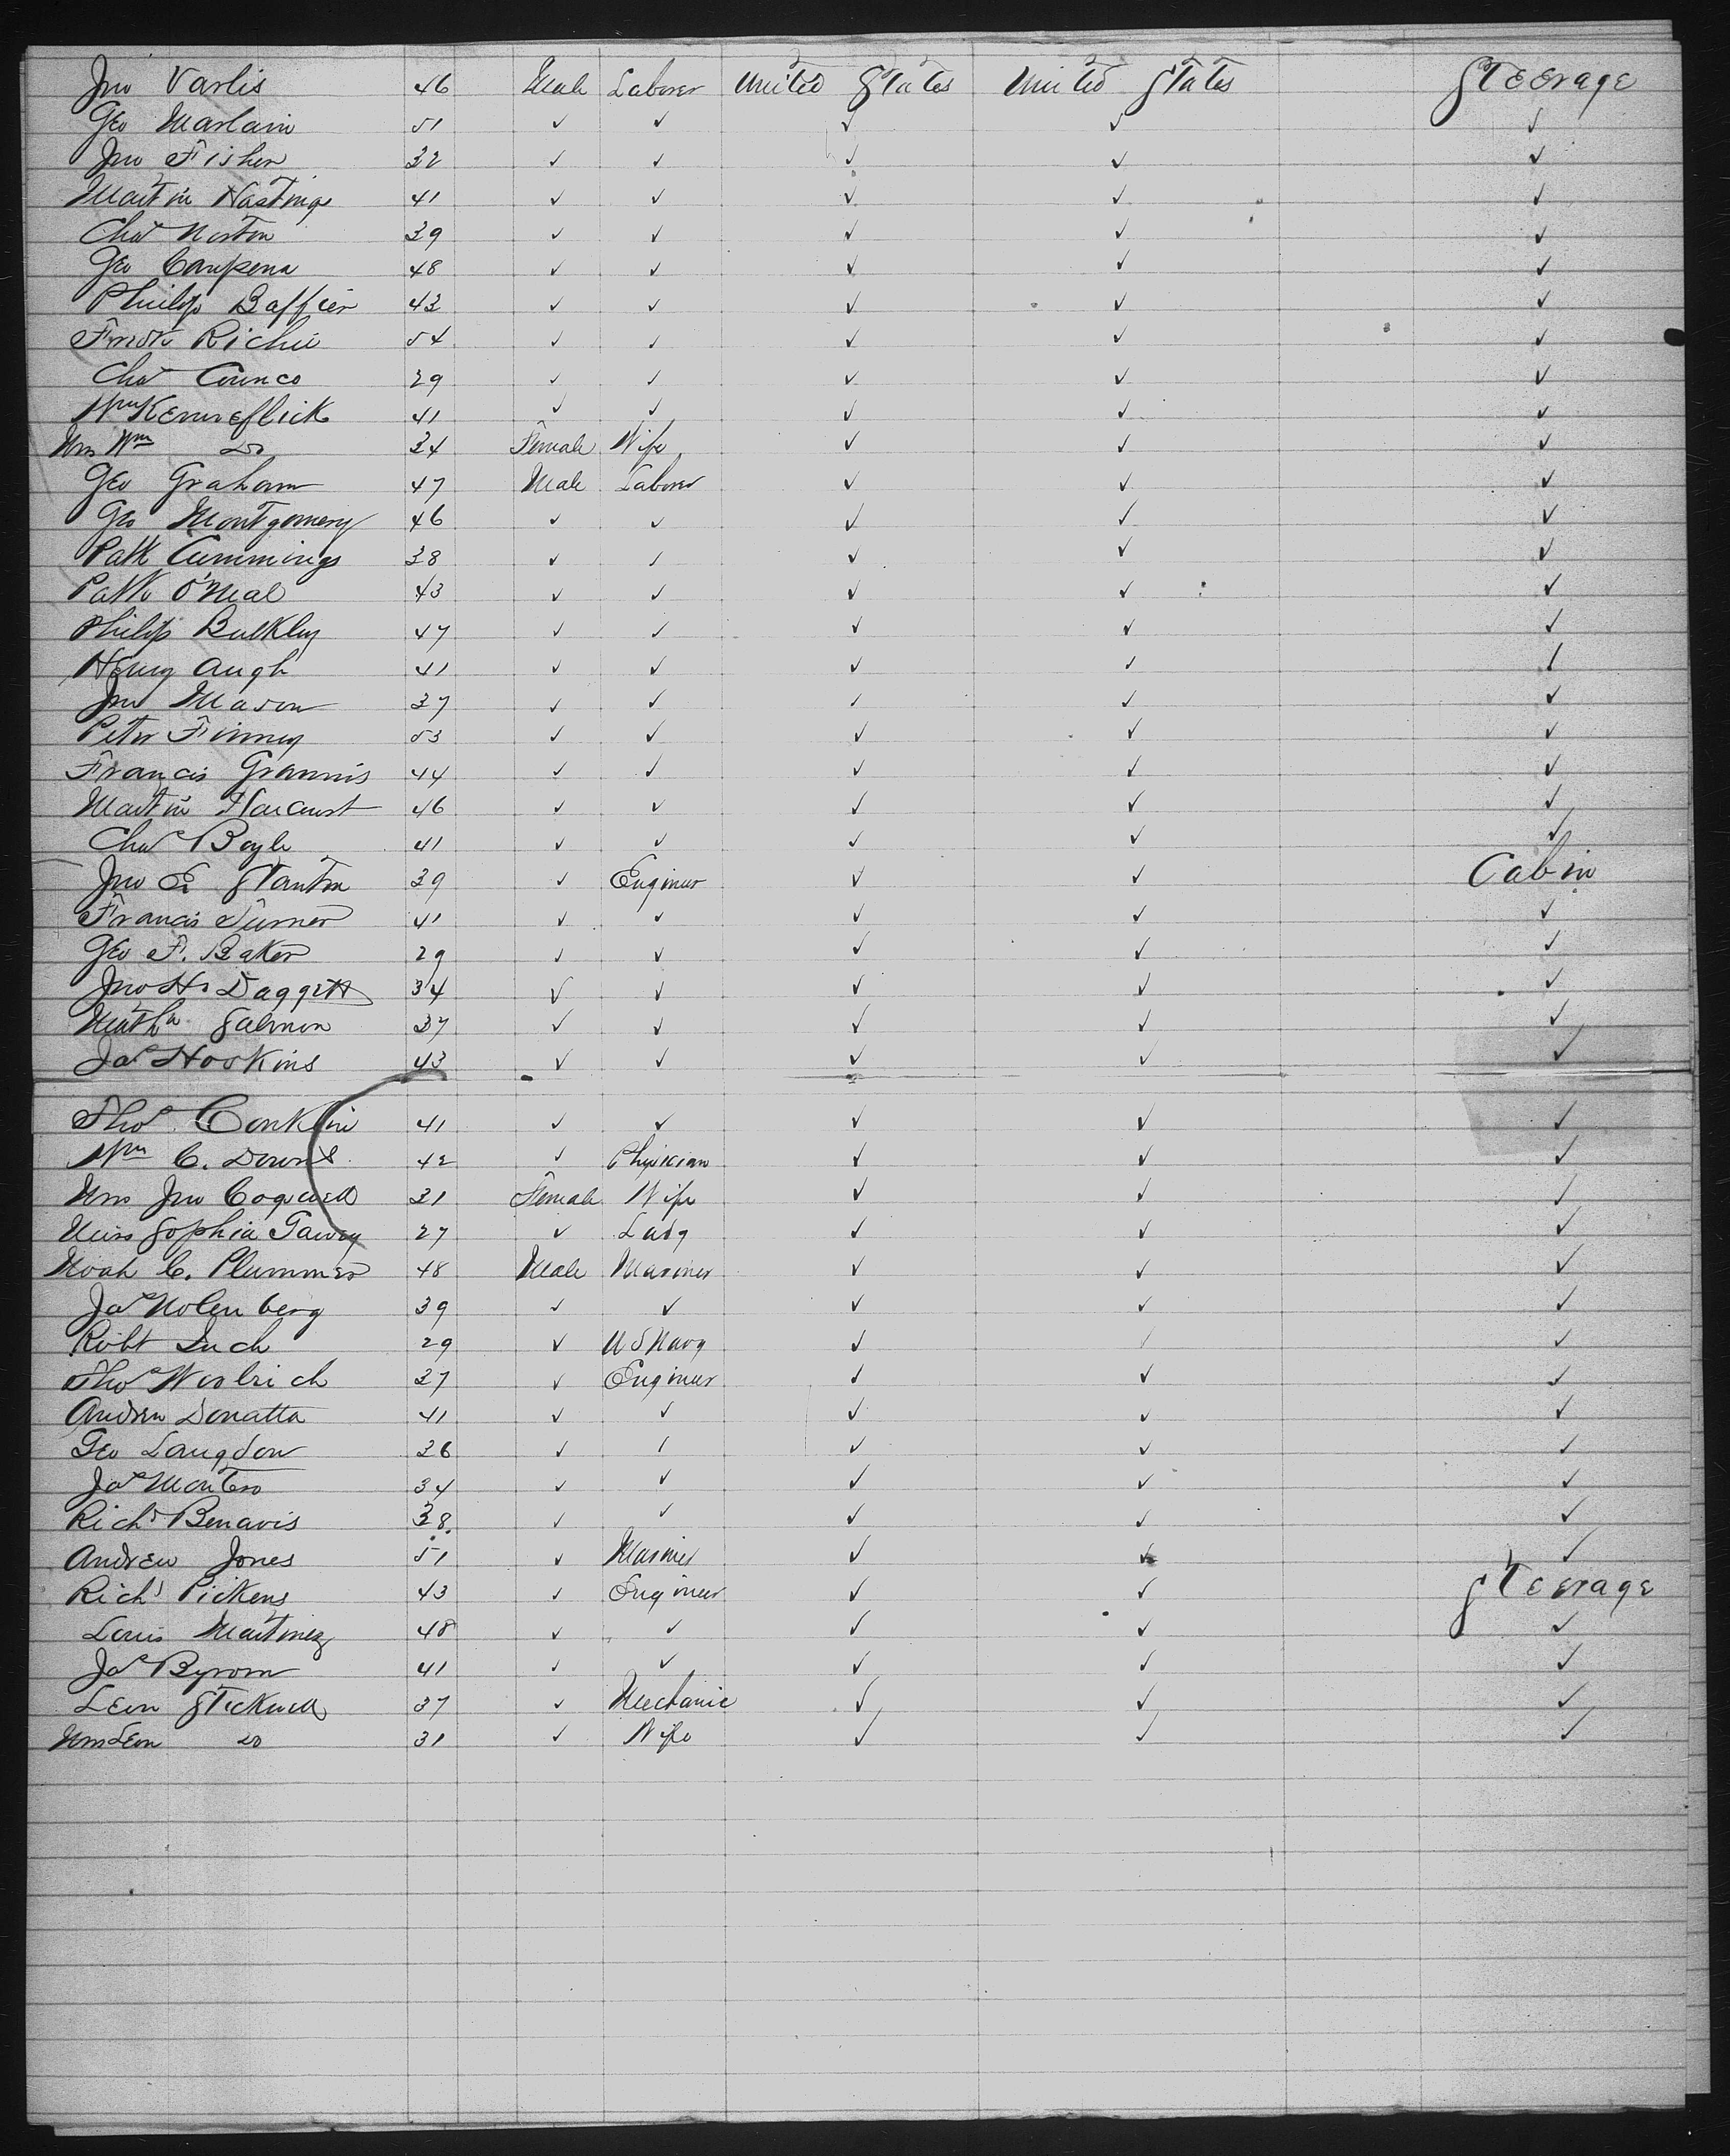 Jno Varlis 46 Male Laborer United States United States Steerage
Geo Marlain 51 ✓ ✓ ✓ ✓ ✓
Jno Fisher 32 ✓ ✓ ✓ ✓ ✓
Martin Hastings 41 ✓ ✓ ✓ ✓ ✓
Chas Norton 39 ✓ ✓ ✓ ✓ ✓
Geo Campena 48 ✓ ✓ ✓ ✓ ✓
Philip Baffier 43 ✓ ✓ ✓ ✓ ✓
Fredk Richie 54 ✓ ✓ ✓ ✓ ✓
Chas 29 ✓ ✓ ✓ ✓ ✓
Wm 41 ✓ ✓ ✓ ✓ ✓
Mrs Wm Do 34 Female Wife ✓ ✓ ✓
Geo Graham 47 Male Laborer ✓ ✓ ✓
Geo Montgomery 46 ✓ ✓ ✓ ✓ ✓
Patk Cummings 38 ✓ ✓ ✓ ✓ ✓
Patk O'Neal 43 ✓ ✓ ✓ ✓ ✓
Philip Bulkley 47 ✓ ✓ ✓ ✓ ✓
Henry Augh 41 ✓ ✓ ✓ ✓ ✓
Jno Mason 37 ✓ ✓ ✓ ✓ ✓
Peter Finney 53 ✓ ✓ ✓ ✓ ✓
Francis Grannis 44 ✓ ✓ ✓ ✓ ✓
Martin Harcourt 46 ✓ ✓ ✓ ✓ ✓
Chas Boyle 41 ✓ ✓ ✓ ✓ ✓
Jno E Stanton 39 ✓ Engineer ✓ ✓ Cabin
Francis Turner 41 ✓ ✓ ✓ ✓ ✓
Geo F. Baker 29 ✓ ✓ ✓ ✓ ✓
Jno H. Daggett 34 ✓ ✓ ✓ ✓ ✓
Salmon 37 ✓ ✓ ✓ ✓ ✓
Jas Hoskins 43 ✓ ✓ ✓ ✓ ✓
Thos Conklin 41 ✓ ✓ ✓ ✓ ✓
Wm C. Downs 42 ✓ Physician ✓ ✓ ✓
Mrs Jno Cogswell 31 Female Wife ✓ ✓ ✓
Miss Sophia 27 ✓ Lady ✓ ✓ ✓
Noah C. Plummer 48 Male Mariner ✓ ✓ ✓
Jas Molenberg 39 ✓ ✓ ✓ ✓ ✓
Robt Inch 29 ✓ U S Navy ✓ ✓ ✓
Thos Woolrich 37 ✓ Engineer ✓ ✓ ✓
Andrew Donatta 41 ✓ ✓ ✓ ✓ ✓
Geo Langdon 36 ✓ ✓ ✓ ✓ ✓
Jas Montero 34 ✓ ✓ ✓ ✓ ✓
Richd Benavis 38 ✓ ✓ ✓ ✓ ✓
Andrew Jones 51 ✓ Mariner ✓ ✓ ✓
Richd Pickens 43 ✓ Engineer ✓ ✓ Steerage
Louis Martinez 48 ✓ ✓ ✓ ✓ ✓
Jas Byrom 41 ✓ ✓ ✓ ✓ ✓
Leon Stickwell 37 ✓ Mechanic ✓ ✓ ✓
Mrs Leon Do 31 ✓ Wife ✓ ✓ ✓